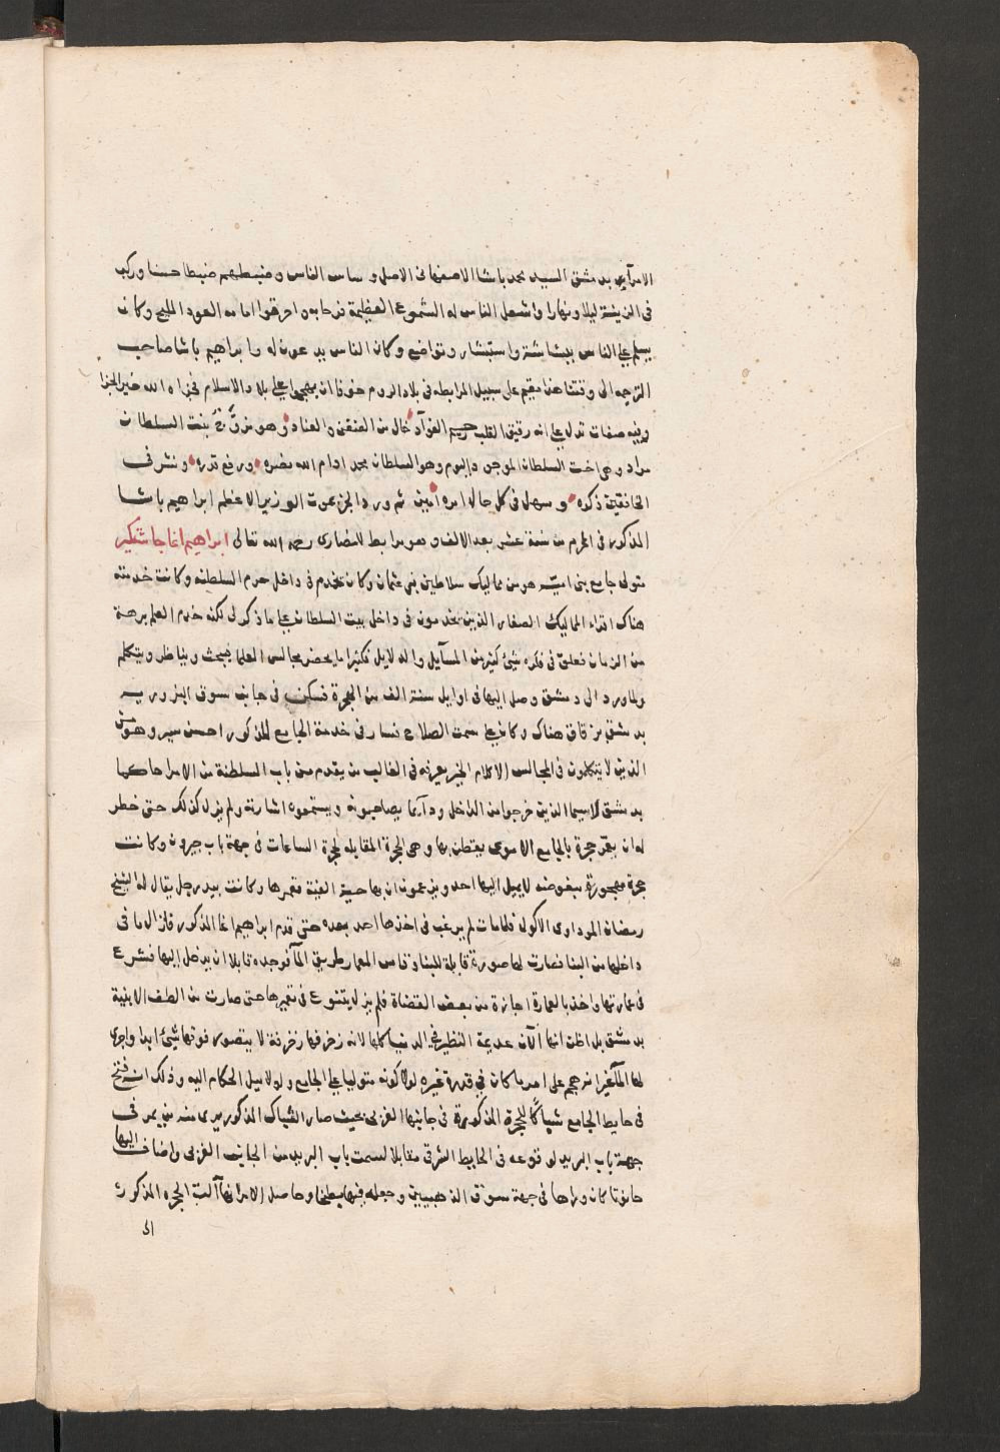 الامرآءي بدمشق السيد محمد باشا الاصفهاني الاصل و ساس الناس وضبطهم ضبطا حسنا وركب
في الزينة ليلا ونهارا واشعل الناس له الشموع العظيمة فرحا به واحرقوا امامه العود المليح وكان
يسلم على الناس ببشاشة واستبشار وتواضع وكان الناس يدعون له وابراهيم باشا صاحب
الترجمه الى وقتنا هذا مقيم على سبيل المرابطه في بلاد الروم خوفا ان يهجموا على بلاد الاسلام فجزاه الله خير الجزا
وفيه صفات تدل على انه رقيق القلب الفوآد خال من والعناد وهو متزوج بنت السلطان
مراد وهي اخت السلطان الموجود اليوم وهو السلطان محمد ادام الله نصره ورفع قدره ونشر في
الخافقين ذكره وسهل في كل حال امره آمين ثم ورد الخبر بموت الوزير الاعظم ابراهيم باشا
المذكور في المحرم من سنة عشر بعد الالف وهو مرابط للنصارى رحمه الله تعالى ابراهيم اغا جاشنكير
متولى جامع بني اميّه هو من مماليك سلاطين بني عثمان وكان يخدم في داخل حرم السلطنه وكانت خدمته
هناك اقراء المماليك الصغار الذين يخدمون في داخل بيت السلطان على ما ذكر لي لكنه خدم العلم برهة
من الزمان فعلق في فكره شيئ كثير من المسآيل والدلايل فكثيرا ما يحضر مجالس العلما فيبحث ويناظر ويتكلم
ولما ورد الى دمشق وصل اليها في اوايل سنة الف من الهجرة فسكن في جانب سوق البزورية
بدمشق بزقاق هناك وكان على سمت الصلاح فسار في خدمة الجامع المذكور احسن سير وهو من
الذين لا يتكلمون في المجالس الا كلام الخير يعرفه في الغالب من يقدم من باب السلطنة من الامرا حاكما
بدمشق لاسيما الذين خرجوا من الداخل ودآيما يصاحبونه ويستمعون اشارته ولم يزل كذلك حتى خطر
له ان يعمّر حجرة بالجامع الاموى يقطن بها وهي الحجرة المقابلة لحجرة الساعات في جهة باب جيرون وكانت
حجرة مهجورة مبغوضه لايميل اليها احد ويزعمون ان بها حسبة الفتنة فعمرها وكانت بيد رجل يقال له الشيخ
رمضان المرداوى الاكول فلما مات لم يرغب في اخذها احد بعده حتى قدم ابراهيم اغا المذكور فازال ما في
داخلها من البنا فصارت لها صورة قابلة للبنا وقاس المعمار طريق المآ فوجده قابلا ان يدخل اليها فشرع
في عمارتها واخذ بالعمارة اجازة من بعض القضاة فلم يزل يتنوع في تعميرها حتى صارت من الطف الابنية
بدمشق بل اظن انها الآن عديمة النظير في الدنيا كلها لانه زخرفها زخرفة لا يتصور فوقها شيئ ابدا واجرى
لها المآ غير انه هجم على امر ما كان في قدرة غيره لولا كونه متوليا على الجامع ولولا ميل الحكام اليه وذلك انه فتح
في حايط الجامع شباكا للحجرة المذكورة في جانبها الغربى بحيث صار الشباك المذكور يرى منه من يمر في
جهة باب البريد لوقوعه في الحايط الشرقى مقابلا لسمت باب البريد من الجانب الغربى واضاف اليها
حانوتا كان وراها في جهة سوق الذهبيين وجعله فيها مطبخا وحاصل الامر انها آلت الحجره المذكورة
الى